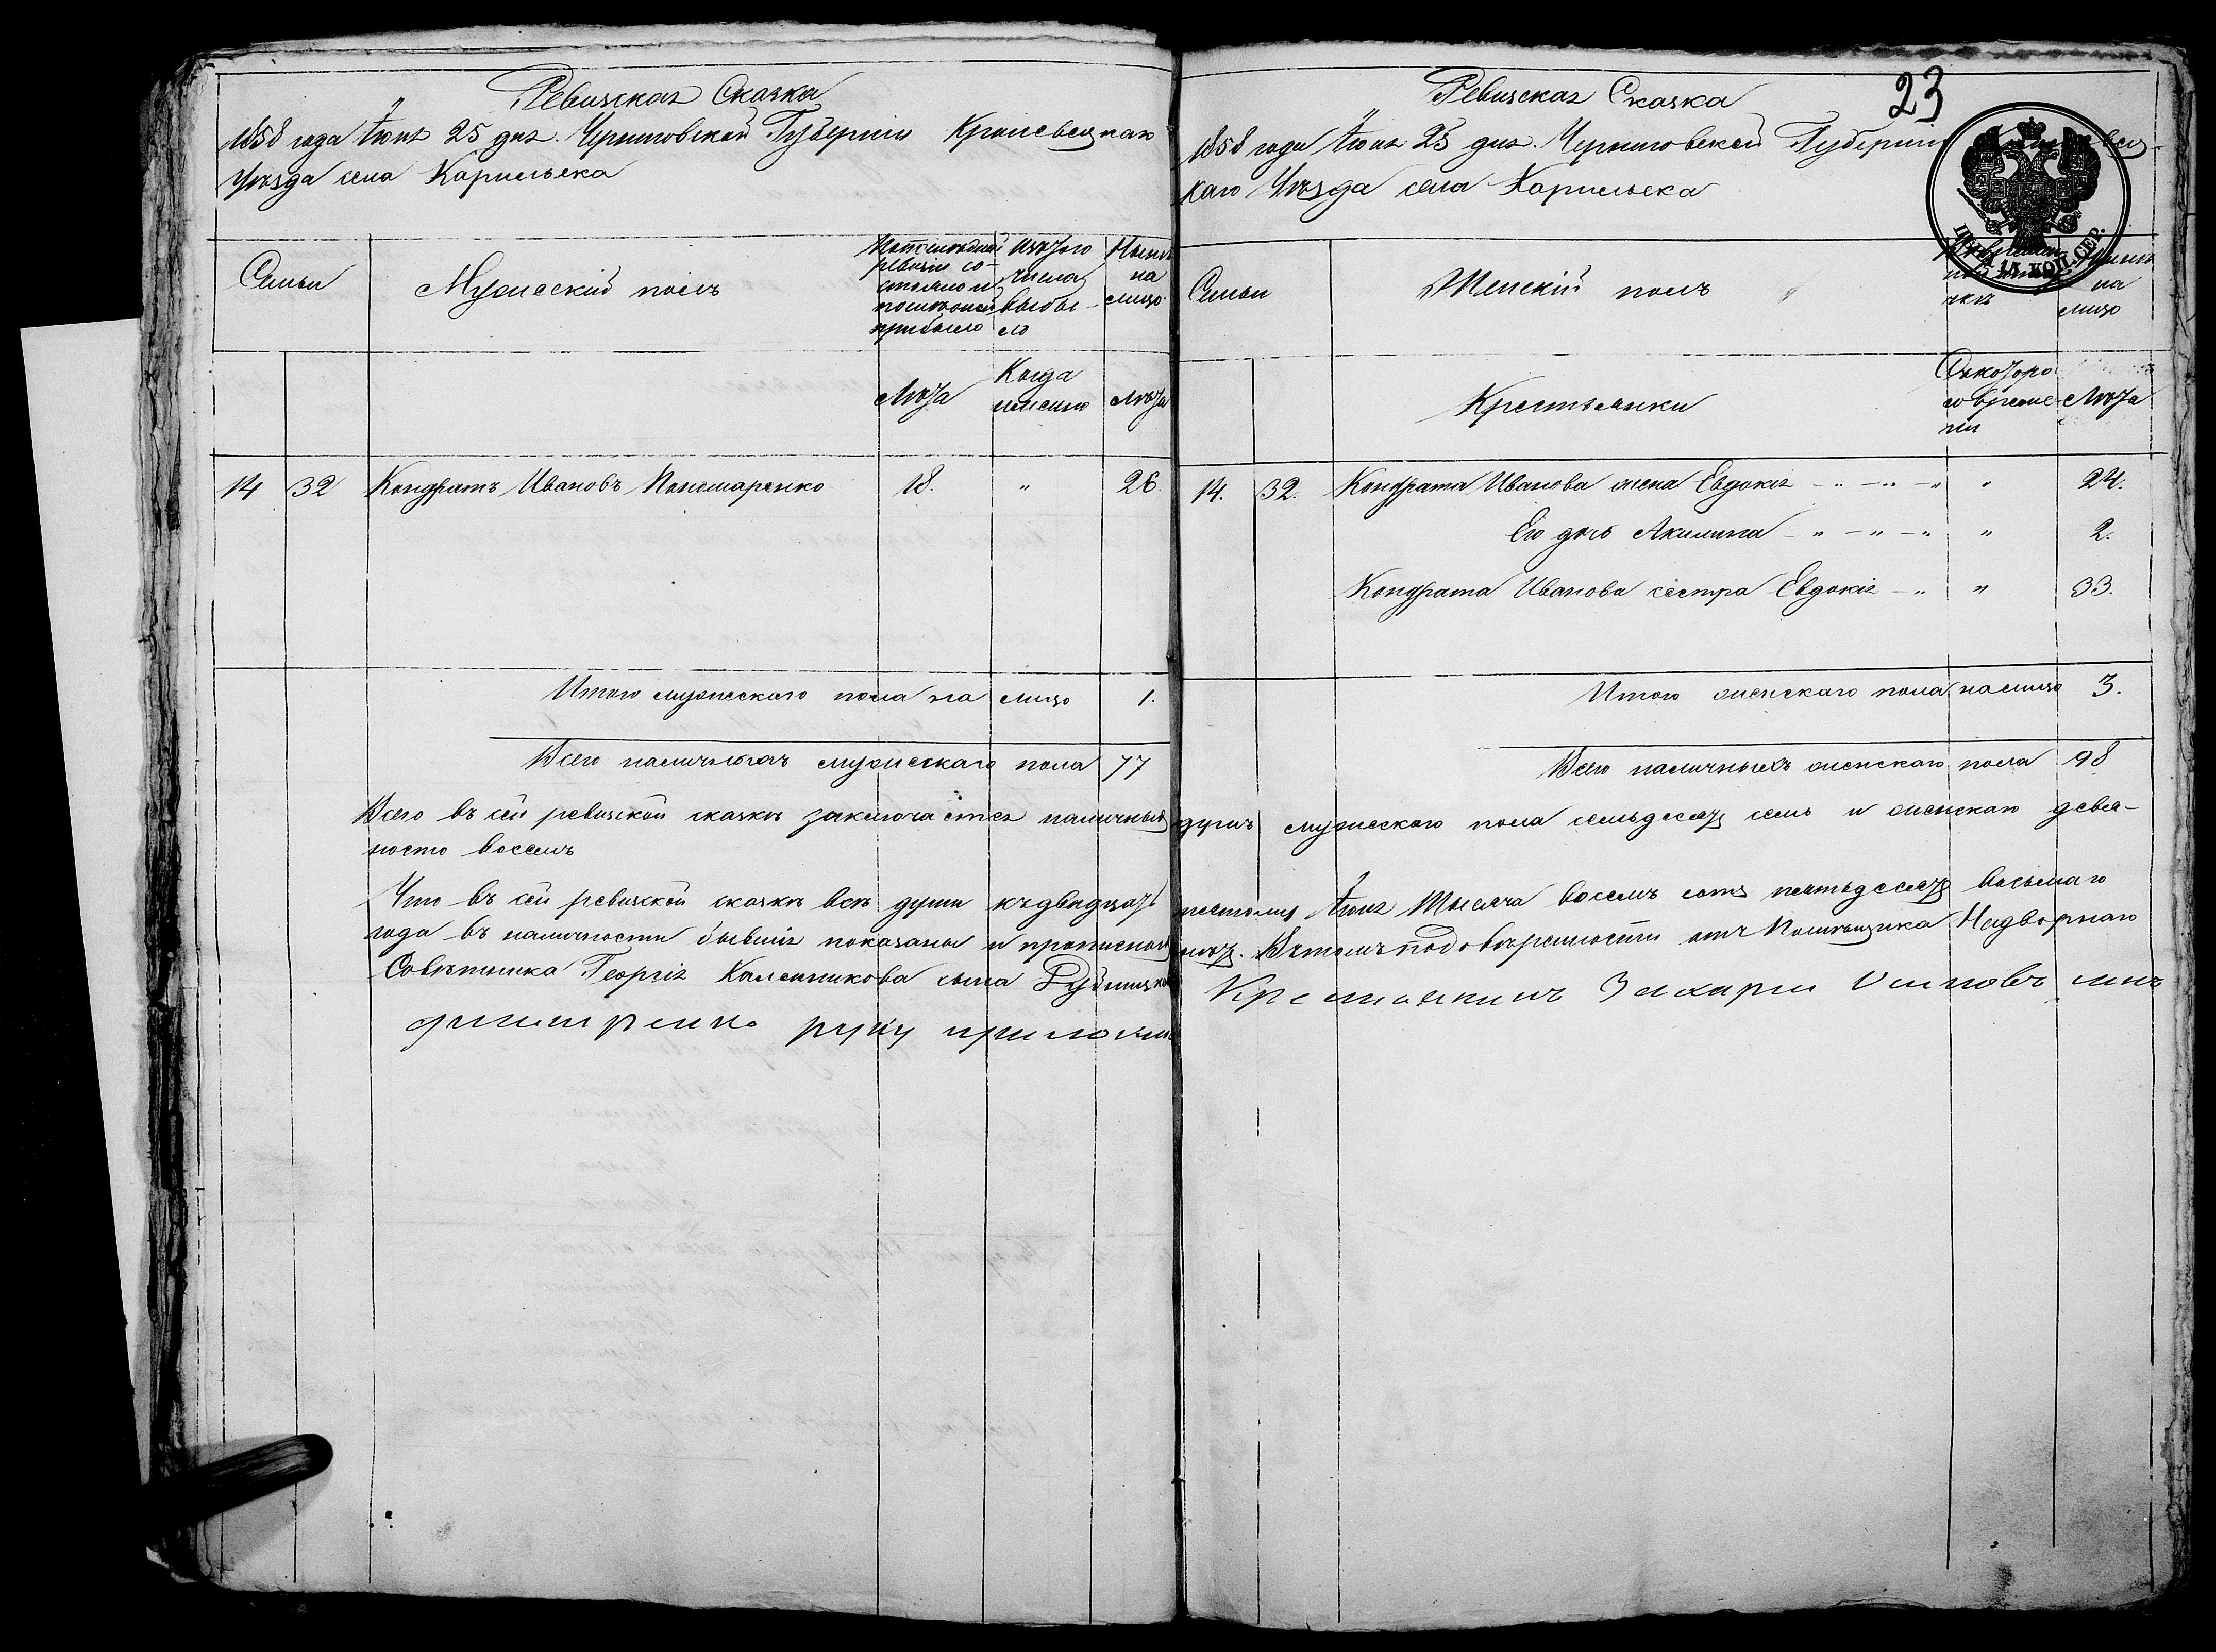 Ревизская Сказка
1858 года Іюня 25 дня. Черниговской Губерніи Кролевецкаго
Уѣзда села Карильска
Семьи
Мужескій полъ
По последней ревизіи состояло и после оной прибыло
Изъ того числа выбыло
Нынѣ на лицо
Лѣта
Когда именно
Лѣта
14 32 Кондратъ Ивановъ Пономаренко 18. " 26
Итого мужескаго пола на лицо 1.
Всего наличныхъ мужескаго пола 77
23
Ревизская Сказка
1858 года Іюня 25 дня. Черниговской Губерніи
каго Уѣзда села Карильска
15 КОП. СЕР.
Семьи
Женскій полъ
на лицо
Крестьянки
Съ котораго времени
Лѣта
14. 32. Кондрата Иванова жена Евдокія " " 24.
Его дочь Акилина " " 2.
Кондрата Иванова сестра Евдокія " " 33.
Итого женскаго пола на лицо 3.
Всего наличныхъ женскаго пола 98
Всего въ сей ревизской сказкѣ заключается наличныхъ душъ мужескаго пола семьдесятъ семь и женскаго девя-
носто восемь
Что въ сей ревизской сказкѣ всѣ души къ двадцать пятому Іюня тысяча восемь сотъ пятьдесятъ восьмаго
года въ наличности бывшія показаны и прописныхъ нѣтъ. Въ томъ по довѣренности отъ Помѣщика Надворнаго
Совѣтника Георгія Каленикова сына Рубец Крестьянинъ Захарій Осиповъ сынъ
Дмитренко руку приложилъ